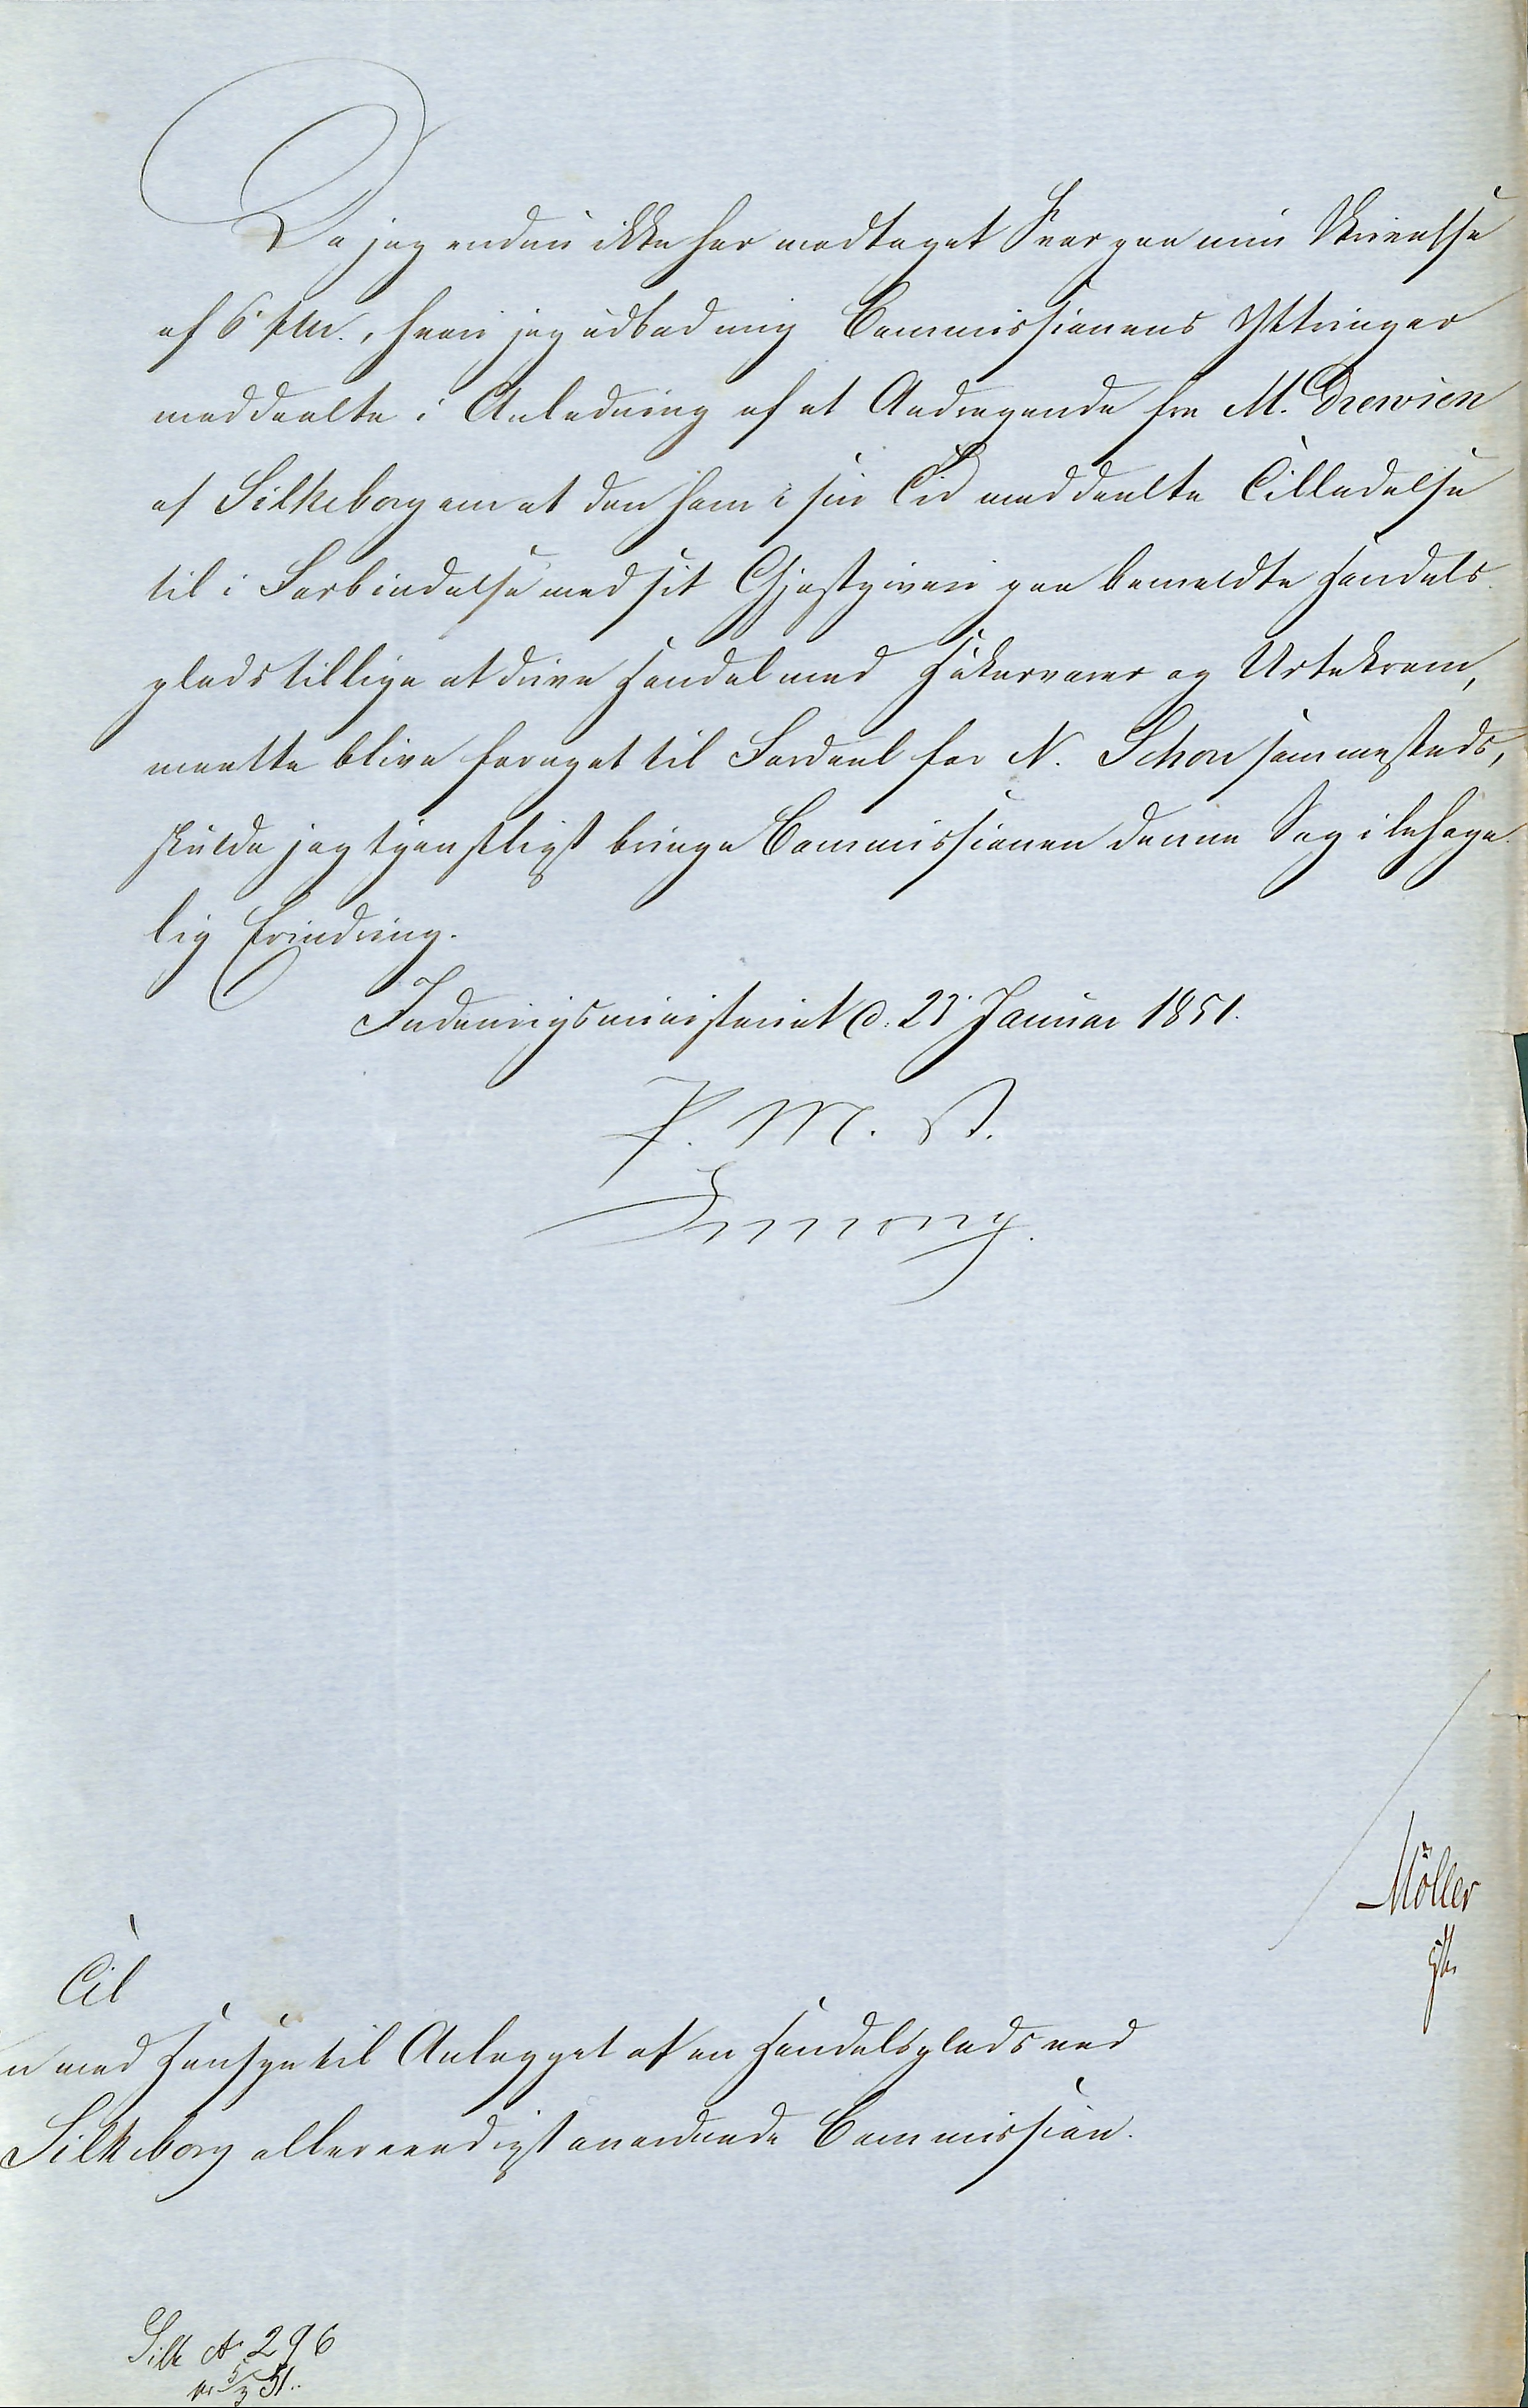 Da jeg endnu ikke har modtaget Svar paa min Skrivelse
af 6 f.M., hvori jeg udbad mig Commissionens Yttringer
meddeelte i Anledning af et Andragende fra M. Drewsen
af Silkeborg om at den ham i sin Tid meddeelte Tilladelse
til i Forbindelse med sit Gjæstgiveri paa bemeldte Handels-
plads tillige at drive Handel med Høkervarer og Urtekram,
maatte blive foraget til Fordeel for N. Schou sammesteds,
skulde jeg tjenstligst bringe Commissionen denne Sag i behage-
lig Erindring.
Indenrigsministeriet d. 23 Januar 1851.
P. M. V.
Simony.
Möller
Til
n med Hensyn til Anlægget af en Handelsplads ved
Silkeborg allernaadigst anordnede Commission.
Silk № 296
51.